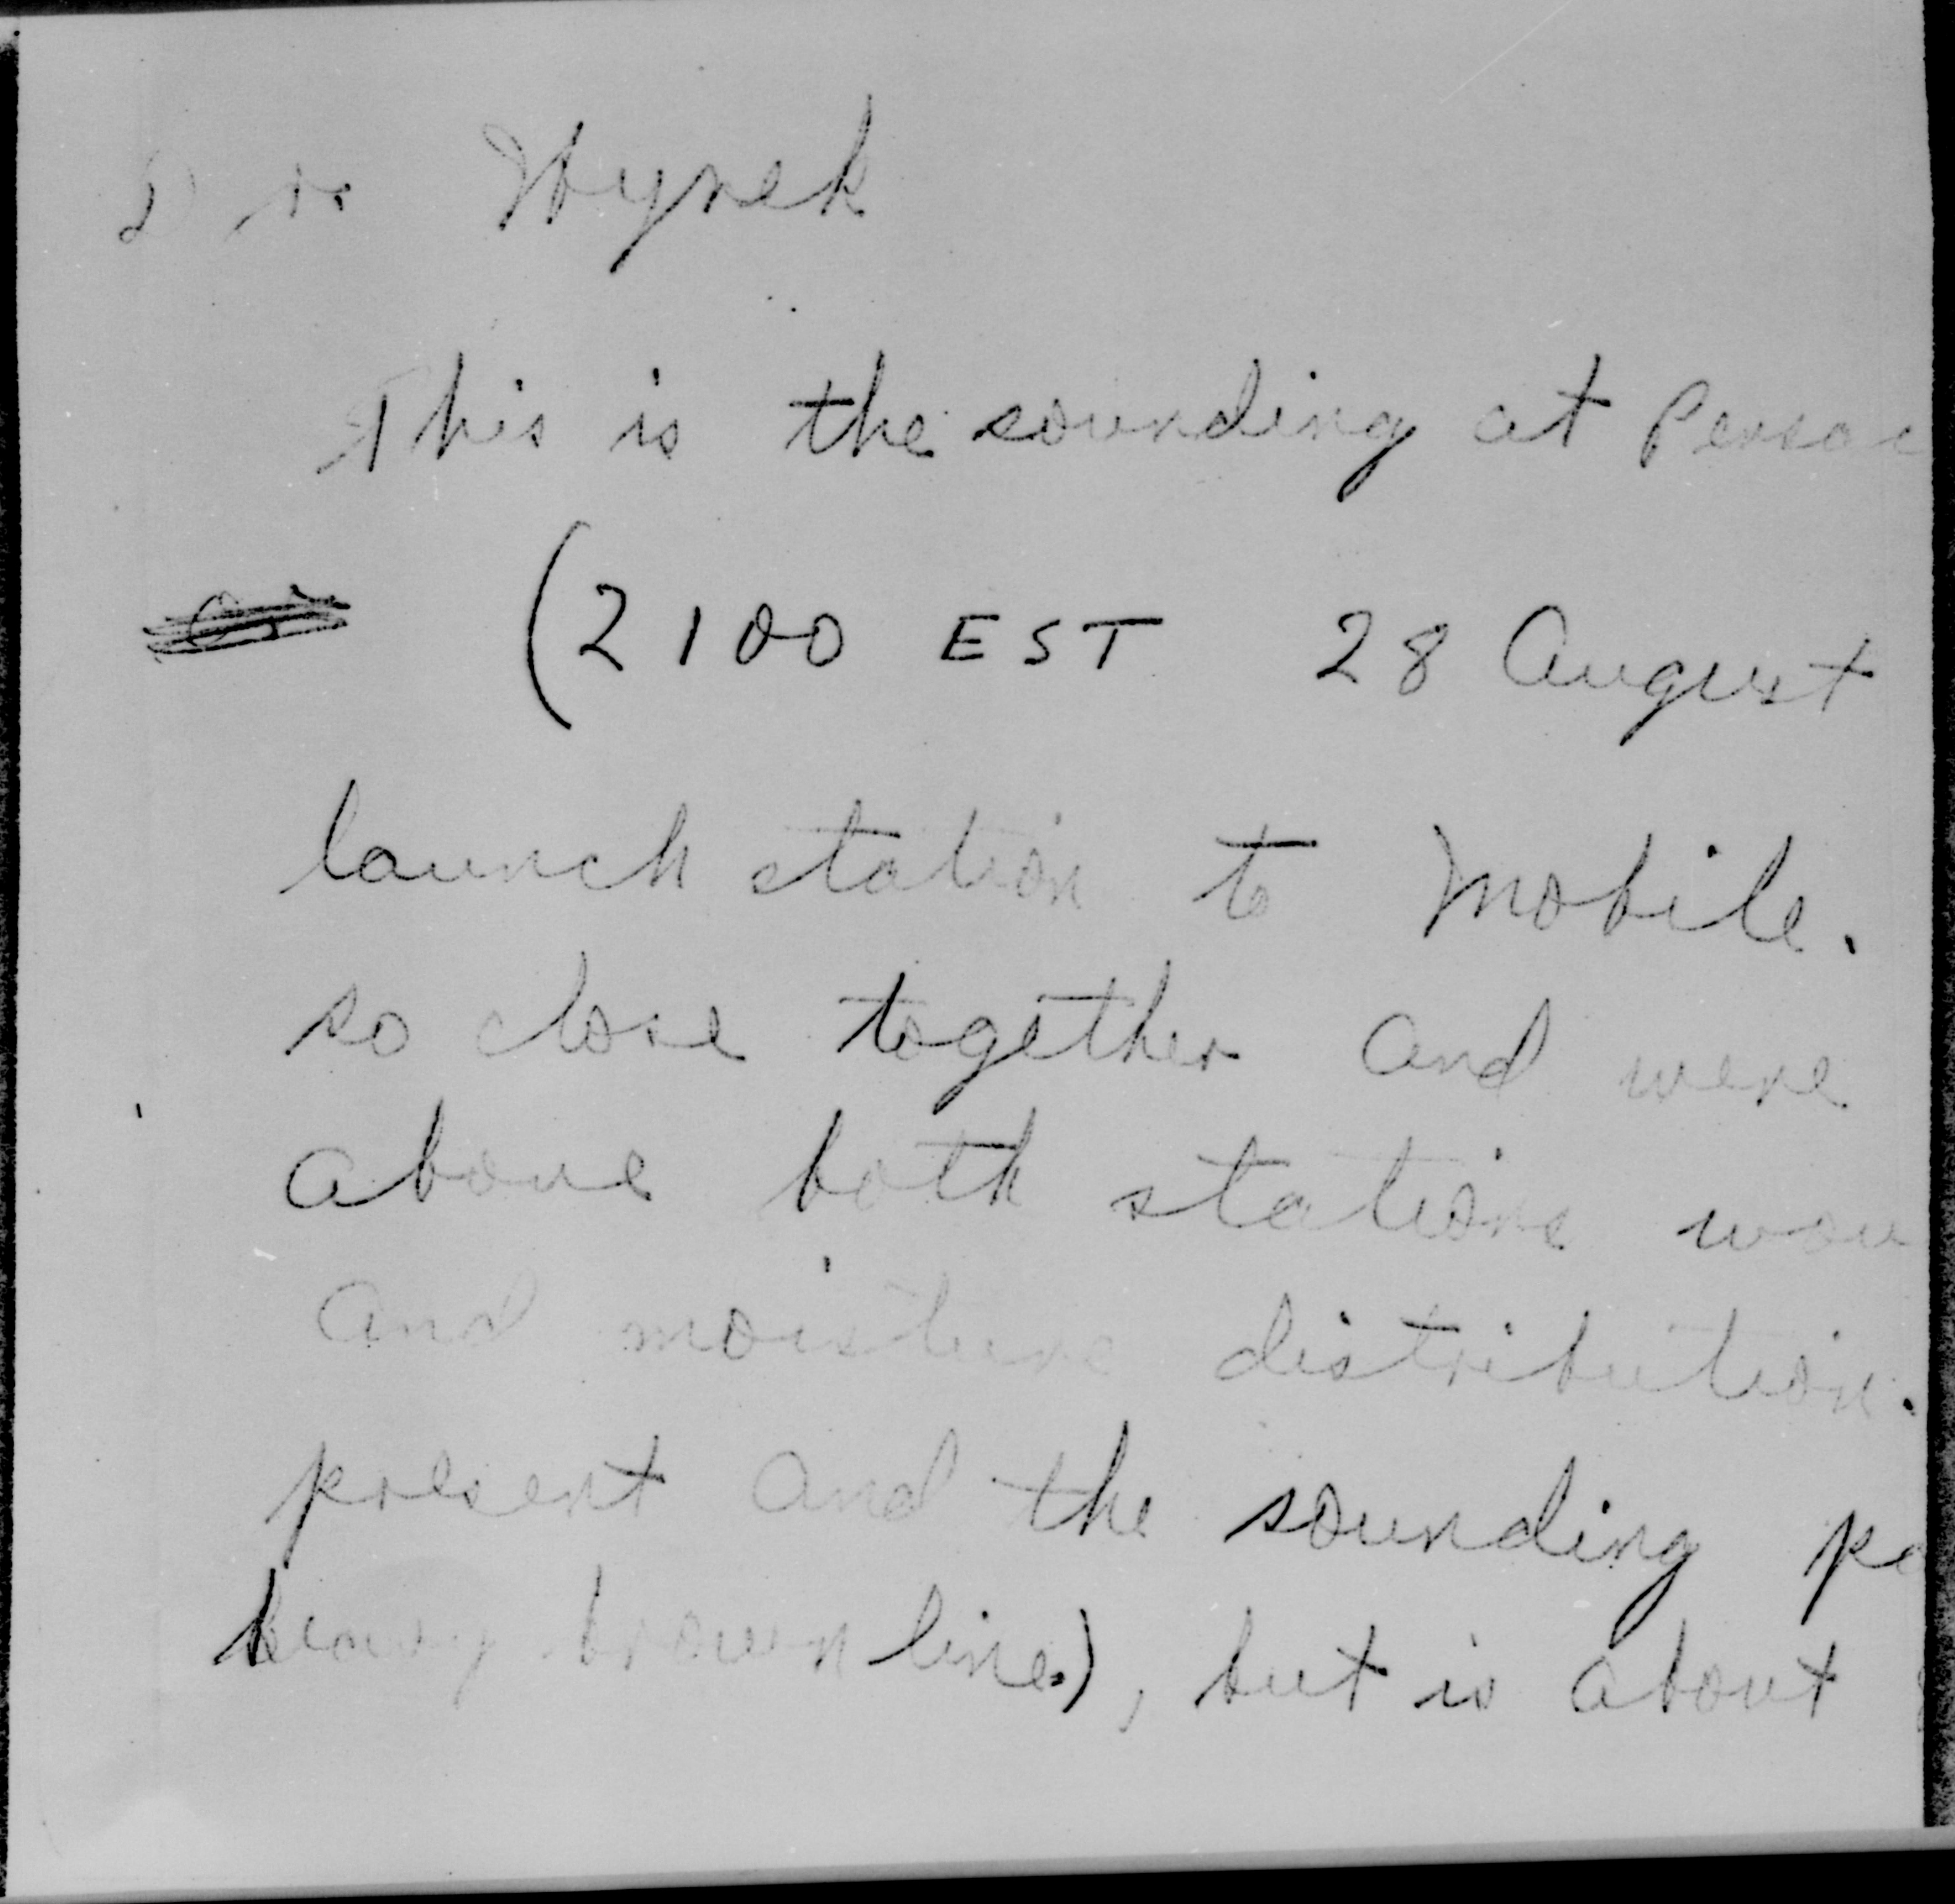 Dr. Hynek
This is the sounding at Pensac
(2100 EST 28 August
launch station to Mobile.
so close together and were
above both stations wou
and moisture distribution.
present and the sounding pa
heavy brown line.), but is about